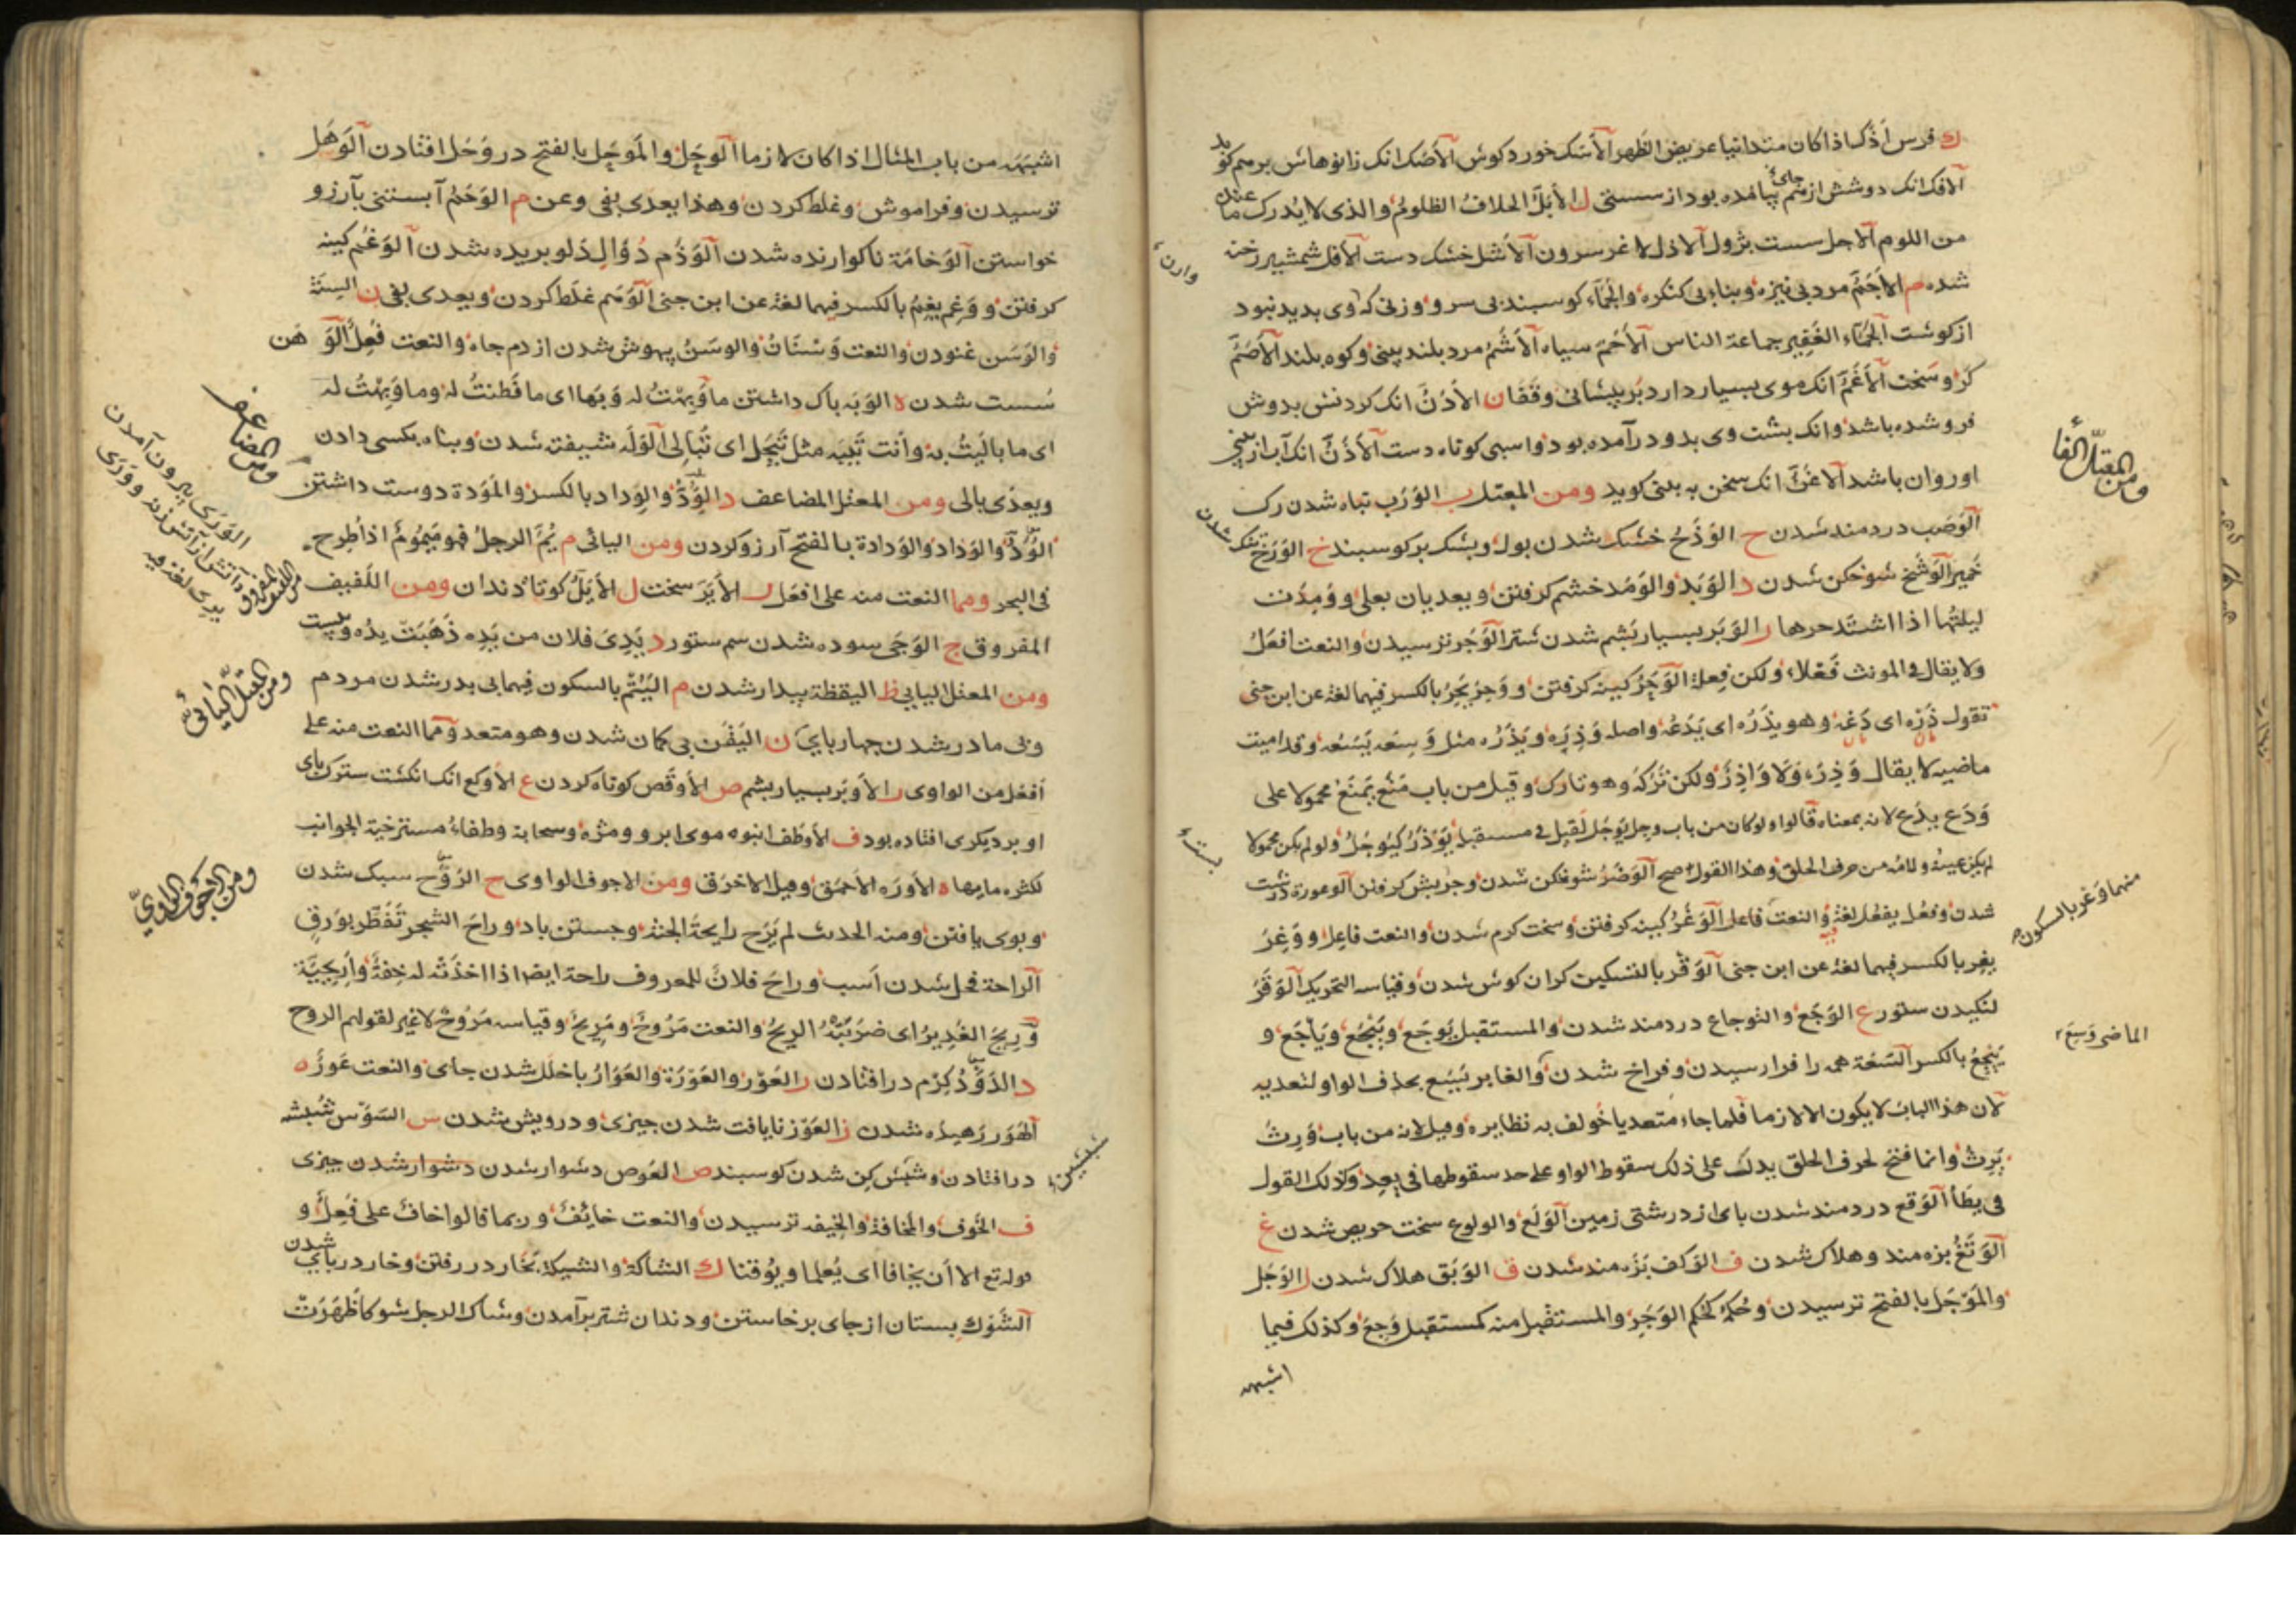 ك فرس اَذَكّ اذا كان متدانيا عريض الظهر الاَسَك خورد كوش الاَصَك انك زانوهاش برهم كوبد
الافك انك دوشش از هم جاى بيامده بود از سستى ل الاَبَلّ الحلاف الظلوم والذى لا يُدرك ما عنده
من اللوم الاحل سست بژول الاذل لاغر سرون الاَشل خشك دست الافل شمشير رخنه
شده م الاَجَمّ مرد بى نيزه وبناء بى كنكره والجمّاء كوسبند بى سرو وزنى كه وى بديد نبود
از كوشت الجمّاء الغَفِير جماعة الناس الاَحَمّ سياه الاَشَمّ مرد بلند بينى وكوه بلند الاَصَمّ
كر وسخت الاَغَمّ انك موى بسيار دارد بر پيشانى وقفا ن الاَدَنّ انك كردنش بدوش
فرو شده باشد وانك پشت وى بدو در آمده بود واسبى كوتاه دست الاَذَنّ انك آب از بينى
او روان باشد الاغَنّ انك سخن به بينى كويد ومن المعتل ب الوَرَب تباه شدن رك
الوَصَب دردمند شدن ح الوَذَح خشك شدن بول وپشك بر كوسبند خ الوَرَخ تنك شدن
خمير الوَسَخ شوخكن شدن د الوَبَد والوَمَد خشم كرفتن ويعديان بعلى ووَمِدَت
ليلتُها اذا اشتد حرها ر الوَبَر بسيار پشم شدن شتر الوَجَر ترسيدن والنعت افعَلُ
ولا يقال فى المونث فَعْلاء ولكن فَعِلة الوَحَر كينه كرفتن ووَحِرَ يَحِرُ بالكسر فيهما لغة عن ابن جنى
تقول ذَرْه اى دَعْه وهو يذَرُه اى يَدَعُه واصله وَذِرَه ويَذَرُه مثل وَسِعَه يَسَعُه وقد اميت
ماضيه لا يقال وَذِرَه وَلا وَاذِرٌ ولكن تَرَكَهُ وهو تارك وقيل من باب مَنَع يَمنَعُ محمولا على
وَدَع يدَع لانه بمعناه قالوا ولو كان من باب وجِل يَوجَل لَقيل فى مستقبله يَوذَرُ كيَوجَلُ ولو لم يكن محمولا
لم يكن عينه ولامه من حرف الحلق وهذا القول اصح الوَضَرُ شوخكن شدن وچربش كرفتن الوعورة درشت
شدن وفعُل يفعُل لغة فيه والنعت فاعل الوَغَرُ كينه كرفتن وسخت كرم شدن والنعت فاعِل ووَغِرَ
يغِر بالكسر فيهما لغة عن ابن جنى الوَقْر بالتسكين كران كوش شدن وقياسه التحريك الوَقَرُ
لنكيدن ستور ع الوَجَع والتوجاع دردمند شدن والمستقبل يَوجَع ويَيْجَعُ ويَاجَع و
يِيْجَعُ بالكسر السَعَة همه را فرا رسيدن وفراخ شدن والغابر يَسَع بحذف الواو لتعديه
لان هذا الباب لا يكون الا لازما فلما جاء متعديا خولف به نظايره وقيل لانه من باب وَرِث
يَرِث وانما فتح لحرف الحلق يدلك على ذلك سقوط الواو على حد سقوطها فى يعِد وكذلك القول
فى يطأ الوَقَع دردمند شدن باى از درشتى زمين الوَلَع والولوع سخت حريص شدن غ
الوَتَغُ بزه مند وهلاك شدن ف الوَكَف بَزَه مند شدن ق الوَبَق هلاك شدن ل الوَجَل
والمَوجَل بالفتح ترسيدن وحُكمه كحُكم الوَجَر والمستقبل منه كمستقبل وَجِعَ وكذلك فيما
اشبهه
ومن المعتلّ الفا
منهما وَغْر بالسكون
الماضى وَسِعَ
اشبهه من باب المثال اذا كان لازما الوَحَل والمَوحَل بالفتح در وَحَل افتادن الوَهَل
ترسيدن وفراموش وغلط كردن وهذا يعدى بفى وعن م الوَحَمُ آبستنى بآرزو
خواستن الوَخَامَة ناكوارنده شدن الوَذَم دُوَال دَلو بريده شدن الوَغَم كينه
كرفتن ووَغِم يغِمُ بالكسر فيهما لغة عن ابن جنى الوَهَم غلط كردن ويعدى بفى ن السِنَة
والوَسَن غنودن والنعت وَسْنَانُ والوسَنُ بيهوش شدن از دم جاه والنعت فَعِل الوَهَن
سُست شدن ه الوَبَه باك داشتن ما وَبِهْتُ له وَبَها اى ما فَطِنتُ له وما وَبِهْتُ له
اى ما باليتُ به وانت تَيبَه مثل تَيجَل اى تُبالى الوَلَه شيفته شدن وپناه بكسى دادن
ويعدّى بالى ومن المعتل المضاعف د الوُدُّ والوِداد بالكسر والمَوَدة دوست داشتن
الوُدّ والوَداد والوَدادة بالفتح آرزو كردن ومن اليائى م يُمَّ الرجلُ فهو مَيمُومٌ اذا طُرِح
فى البحر ومما النعت منه على افعَل ر الاَيَرّ سخت ل الاَيَلّ كوتاه دندان ومن اللفيف
المفروق ج الوَجَى سوده شدن سم ستور د يَدِىَ فلان من يَدِه ذَهَبَتْ يدُه ويَبِست
ومن المعتل اليابى ظ اليقظة بيدار شدن م اليُتْم بالسكون فيهما بى پدر شدن مردم
وبى مادر شدن چهارباى ن اليَقَن بى كمان شدن وهو متعد ومما النعت منه على
اَفعَل من الواوى ر الاَوبَر بسيار پشم ص الاَوقَص كوتاه كردن ع الاَوكَع انك انكشت سترك باى
او بر ديكرى افتاده بود ف الاَوطَف انبوه موى ابرو ومژه وسحابة وطفاءُ مسترخية الجوانب
لكثرة مايها ه الاَورَه الاحمق وقيل الاخرق ومن الاجوف الواوى ح الرَوَح سبك شدن
وبوى يافتن ومنه الحديث لم يَرَح رايحةَ الجنة وجستن باد وراحَ الشجر تَفَطّر بوَرَق
الراحة فحل شدن اسب وراحَ فلانٌ للمعروف راحة ايضا اذا اخذَته له خِفّةٌ واَريَحِيَّة
ورِيحَ الغَدِيرُ اى ضَرَبَتْهُ الرِيحُ والنعت مَرُوحٌ ومَرِيحٌ وقياسه مَرُوحٌ لا غير لقولهم الروح
د الدَوَدُ كِرم در افتادن ر العَوَر والعَوْرَة والعَوَارُ باخلل شدن جاى والنعت عَوِرٌ ه
الهَوَر رهيده شدن ز العَوَز نايافت شدن چيزى ودرويش شدن س السَوَس شُبشه
در افتادن وشپش كن شدن كوسبند ص العَوَص دشوار شدن دشوار شدن چيزى
ف الخَوف والمخافة والخيفه ترسيدن والنعت خائِفٌ وربما قالوا خافٌ على فَعِلٌ و
قوله تع الا اَن يخافا اى يُعلما ويُوقنا ك الشاكة والشيكة بخار در رفتن وخار در باى شدن
الشَوك پستان از جاى برخاستن ودندان شتر برآمدن وشاك الرجل شوكا ظهَرَتْ
ومن المضاعف
الوَرَى بيرون آمدن
اللفيف المفروق
ومن المعتلّ اليائىّ
ومن الاجوف الواوىّ